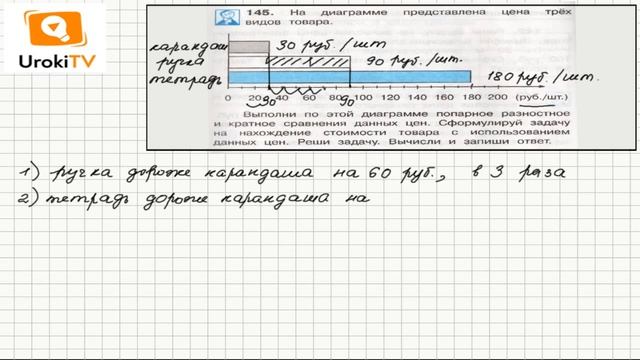 UrokiTV
145. На диаграмме представлена цена трёх
видов товара.
карандаш 30 руб./шт
ручка 90 руб./шт.
тетрадь 180 руб./шт.
0 20 40 60 80 100 120 140 160 180 200 (руб./шт.)
30 90
Выполни по этой диаграмме попарное разностное
и кратное сравнения данных цен. Сформулируй задачу
на нахождение стоимости товара с использованием
данных цен. Реши задачу. Вычисли и запиши ответ.
1) ручка дороже карандаша на 60 руб., в 3 раза
2) тетрадь дороже карандаша на